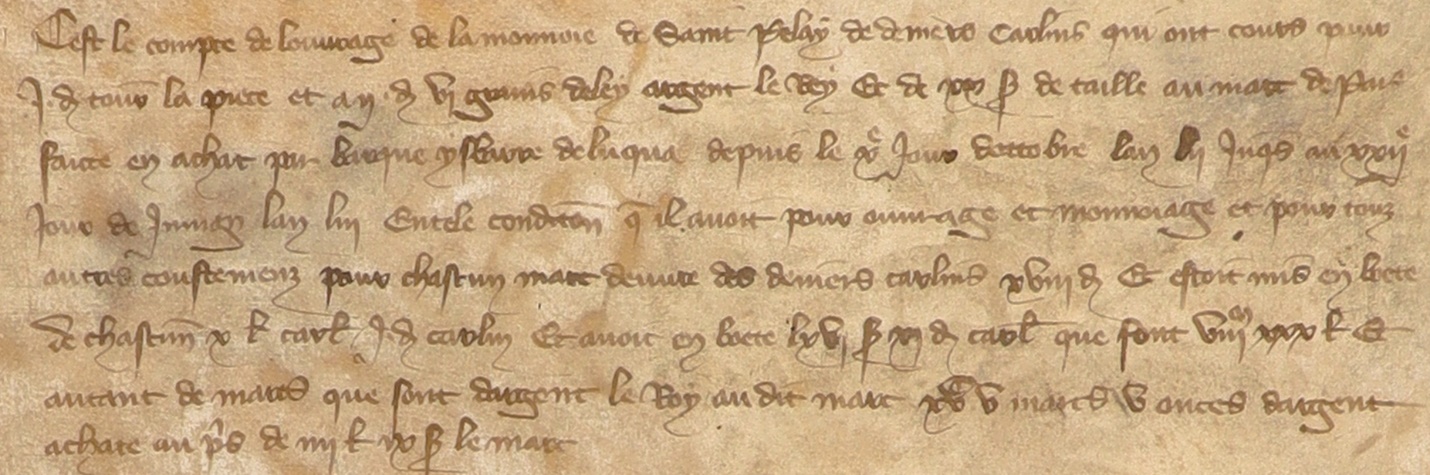 Cest le compte de louvrage de la monnoie de Saint Pelay de deniers Carlins qui ont cours pour
I d tour la piece et a iij d vi grains de ley argent le Roy Et de xx s de taille au marc de Par
faicte en achat par Barque ysbarre de luqua depuis le xe Jour doctobre lan lij Jusqs au xxije
Jour de Juing lan liij En tele condicion q il avoit pour ouvrage et monnoiage et pour touz
autres coustemenz pour chascun marc deuvre des deniers carlins xviij d Et estoit mis en boete
de chascun x l carl I d carlin Et avoit en boete lxvj s xj d carl que font viijm xxx l Et
autant de marcs que sont dargent le Roy au dit marc v marcs v onces dargent
achate au pris de iiij l ix s le marc